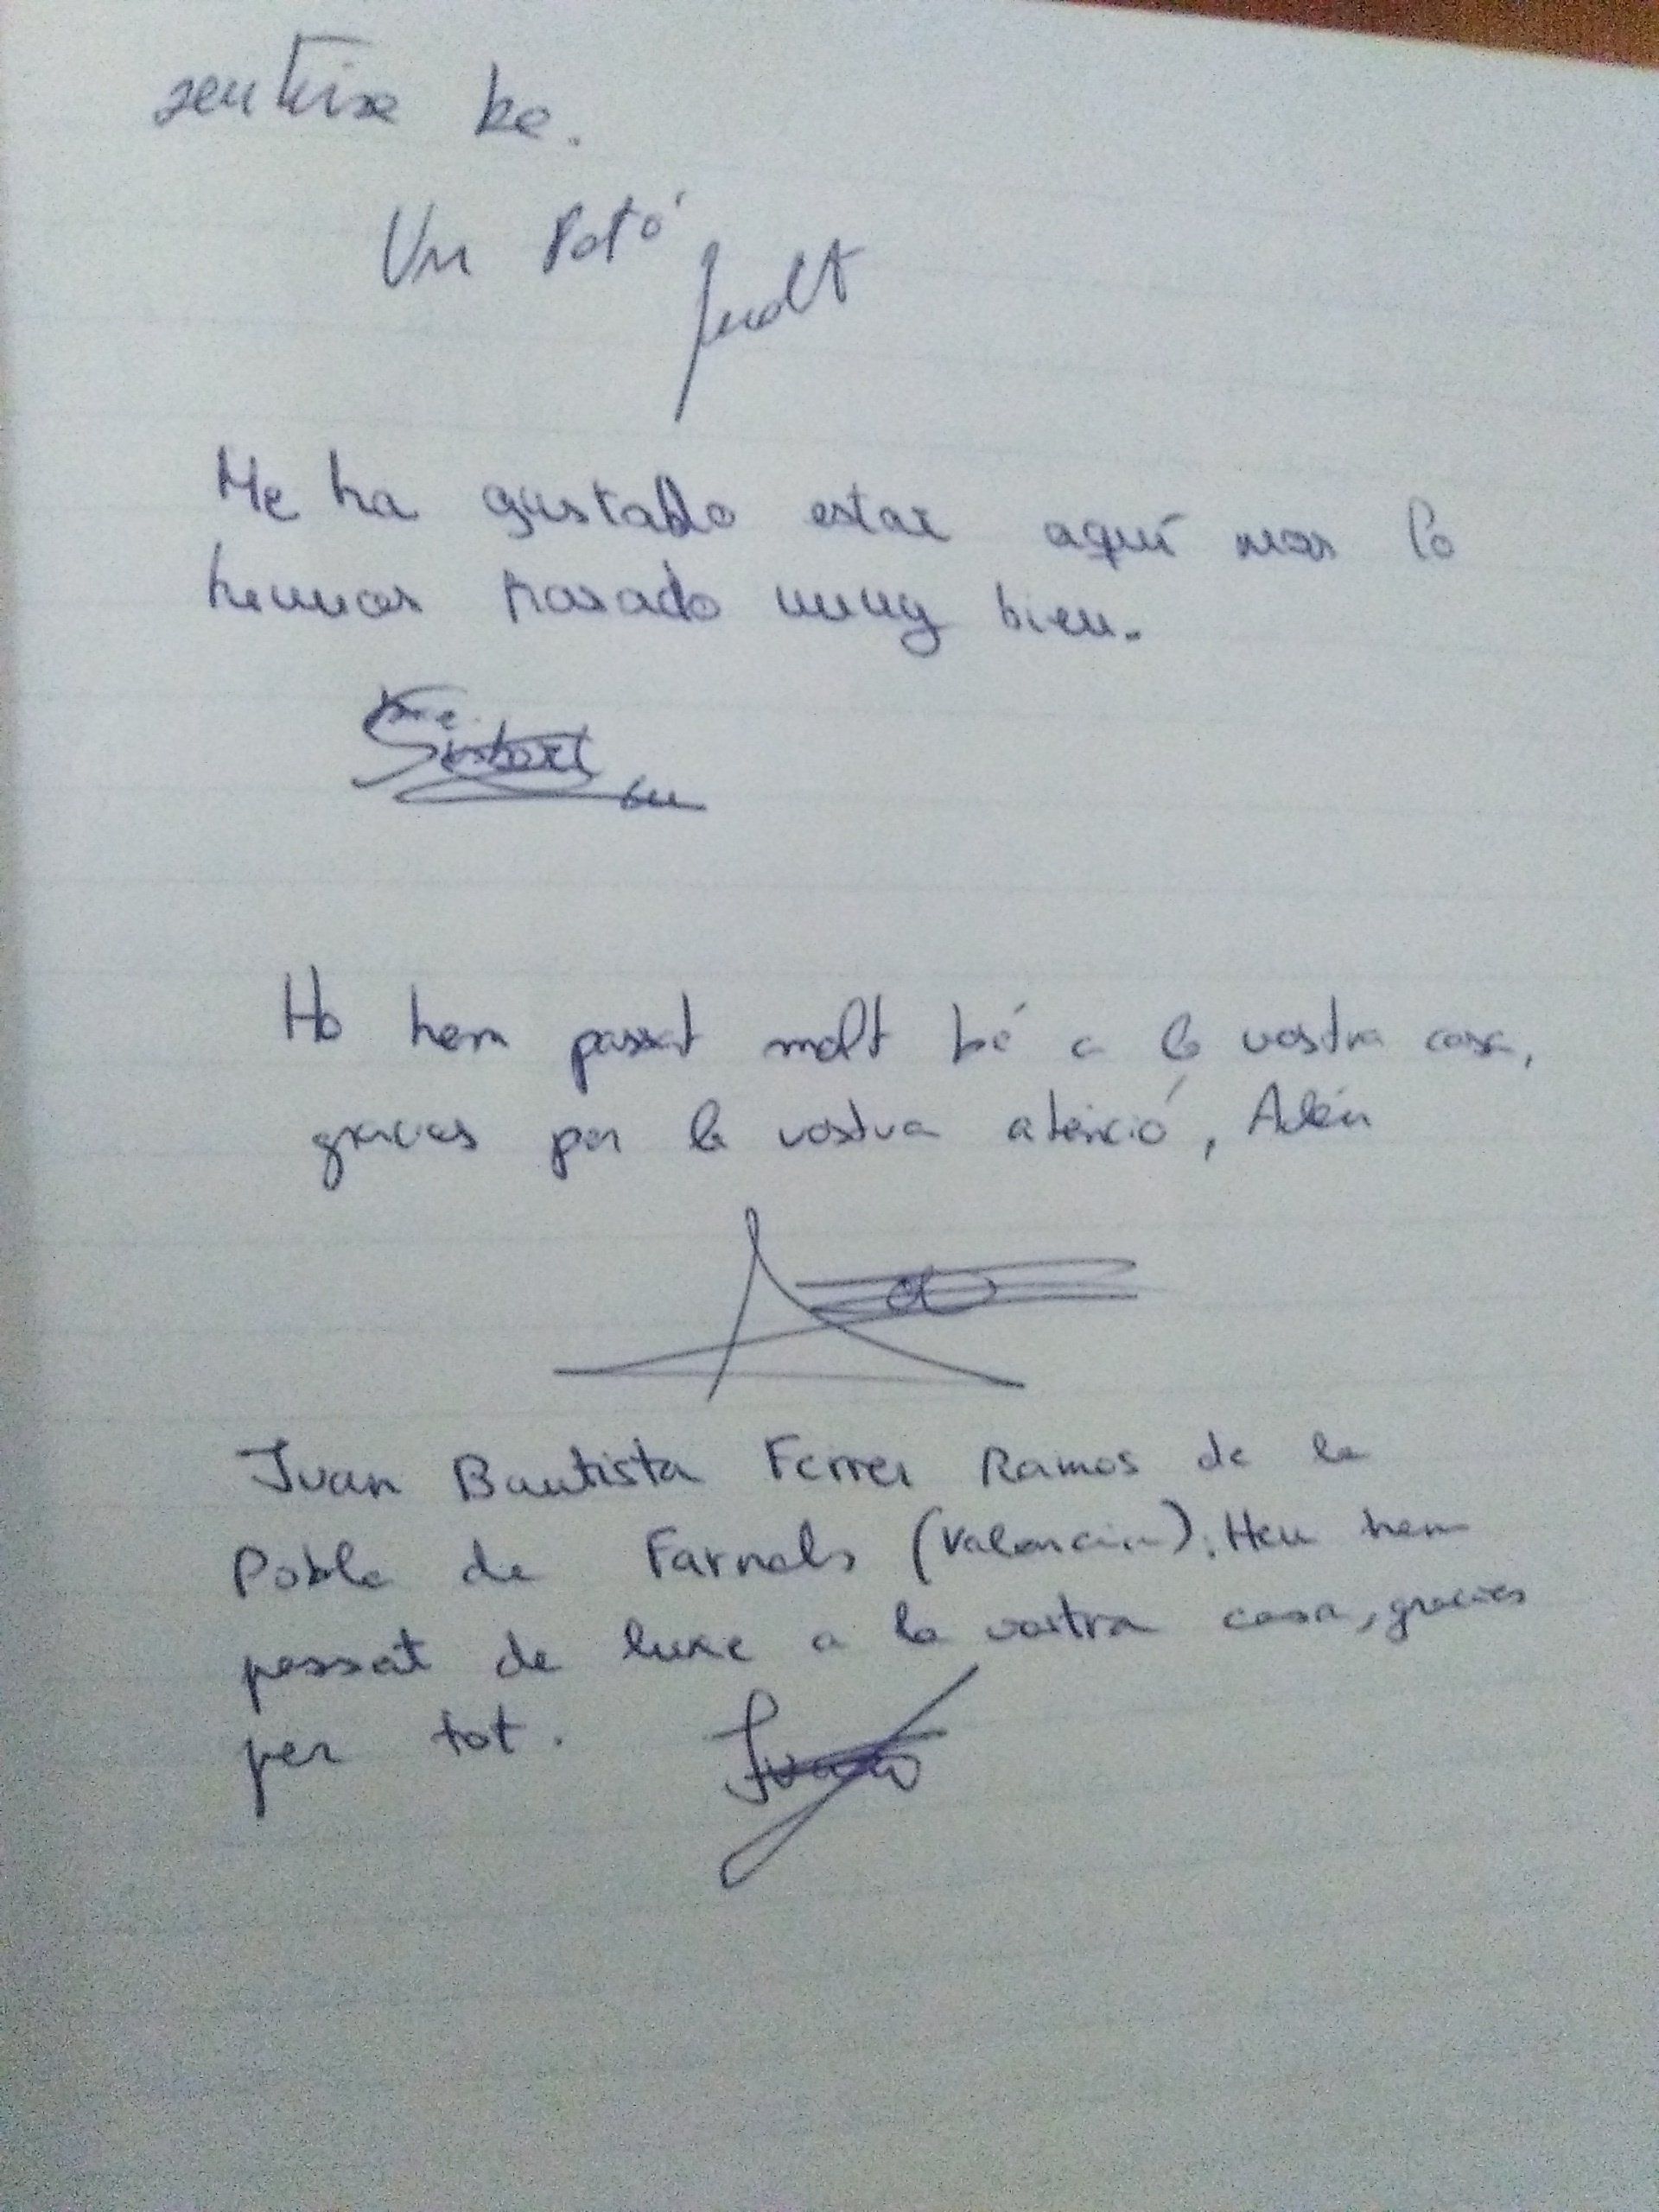 sentirse be.
Un Potó
Judit
Me ha gustado estar aquí nos lo
hemos pasado muy bien.
Ho hem passat molt bé a la vostra casa,
gracies per la vostra atenció, Adén
Juan Bautista Ferrer Ramos de la
Pobla de Farnals (Valencia). Heu hem
passat de luxe a la vostra casa, gracies
per tot.
Juan